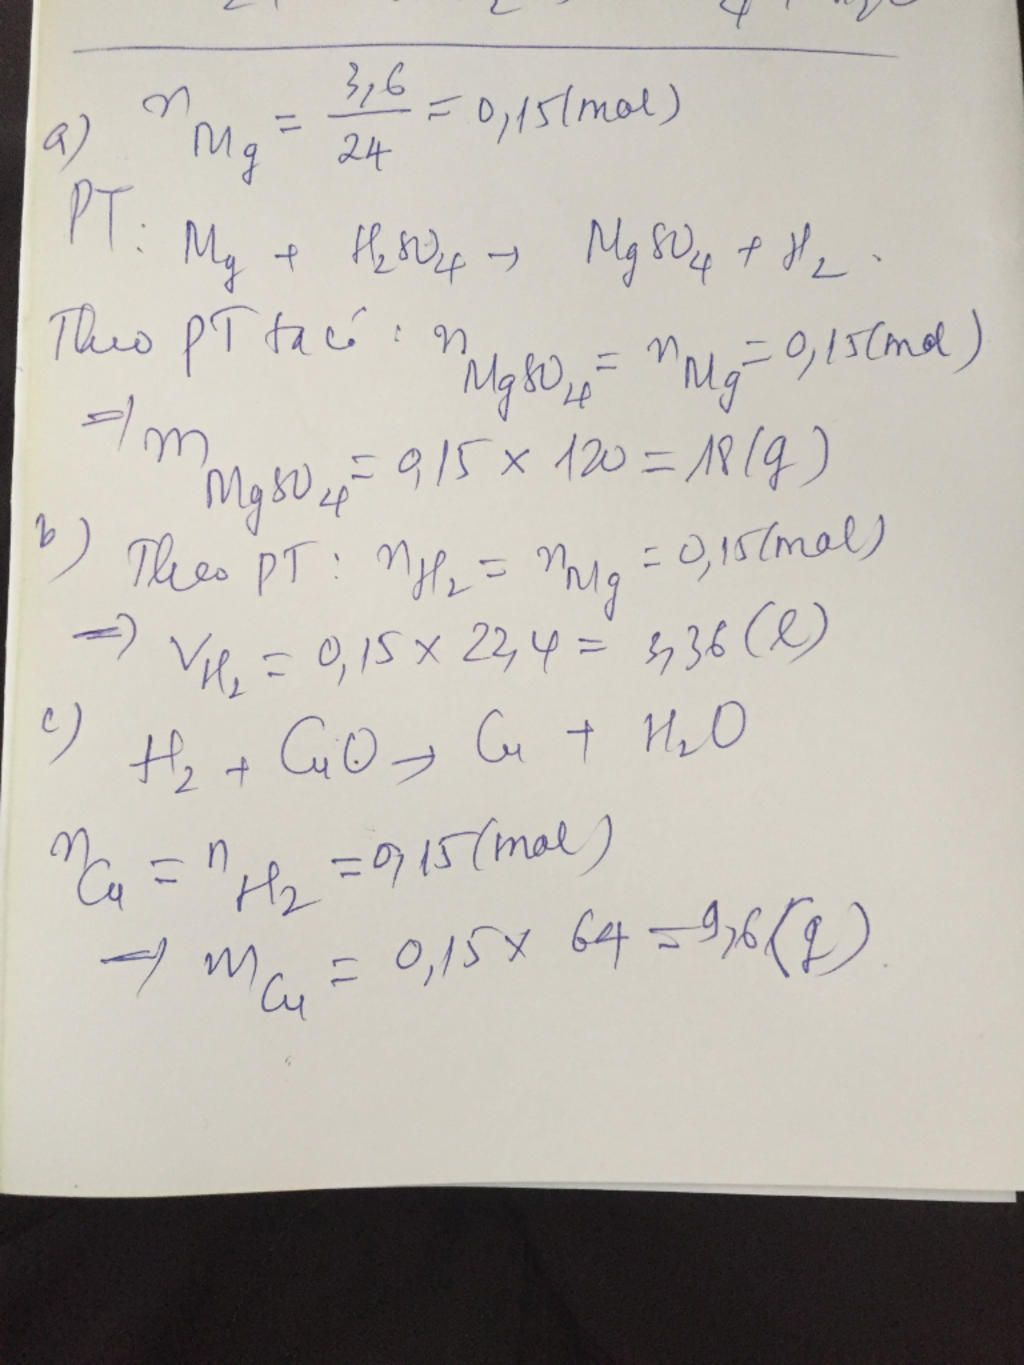 a) n Mg = 3,6/24 = 0,15(mol)
PT: Mg + H₂SO₄ → MgSO₄ + H₂.
Theo PT ta có : n MgSO₄ = n Mg = 0,15(mol)
=) m MgSO₄ = 0,15 × 120 = 18(g)
b) Theo PT : n H₂ = n Mg = 0,15(mol)
=) V H₂ = 0,15 × 22,4 = 3,36 (l)
c) H₂ + CuO → Cu + H₂O
n Cu = n H₂ = 0,15(mol)
=) m Cu = 0,15 × 64 = 9,6(g).